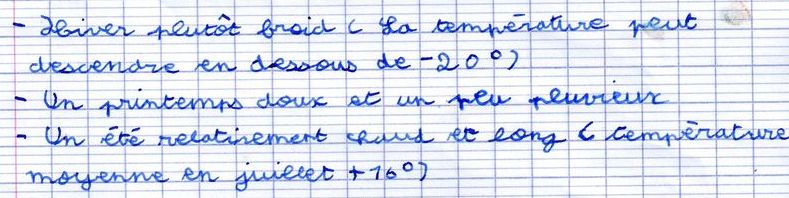 - Hiver plutôt froid ( La température peut
descendre en dessous de -20°)
- Un printemps doux et un peu pluvieux
- Un été relativement chaud et long ( température
moyenne en juillet +16°)